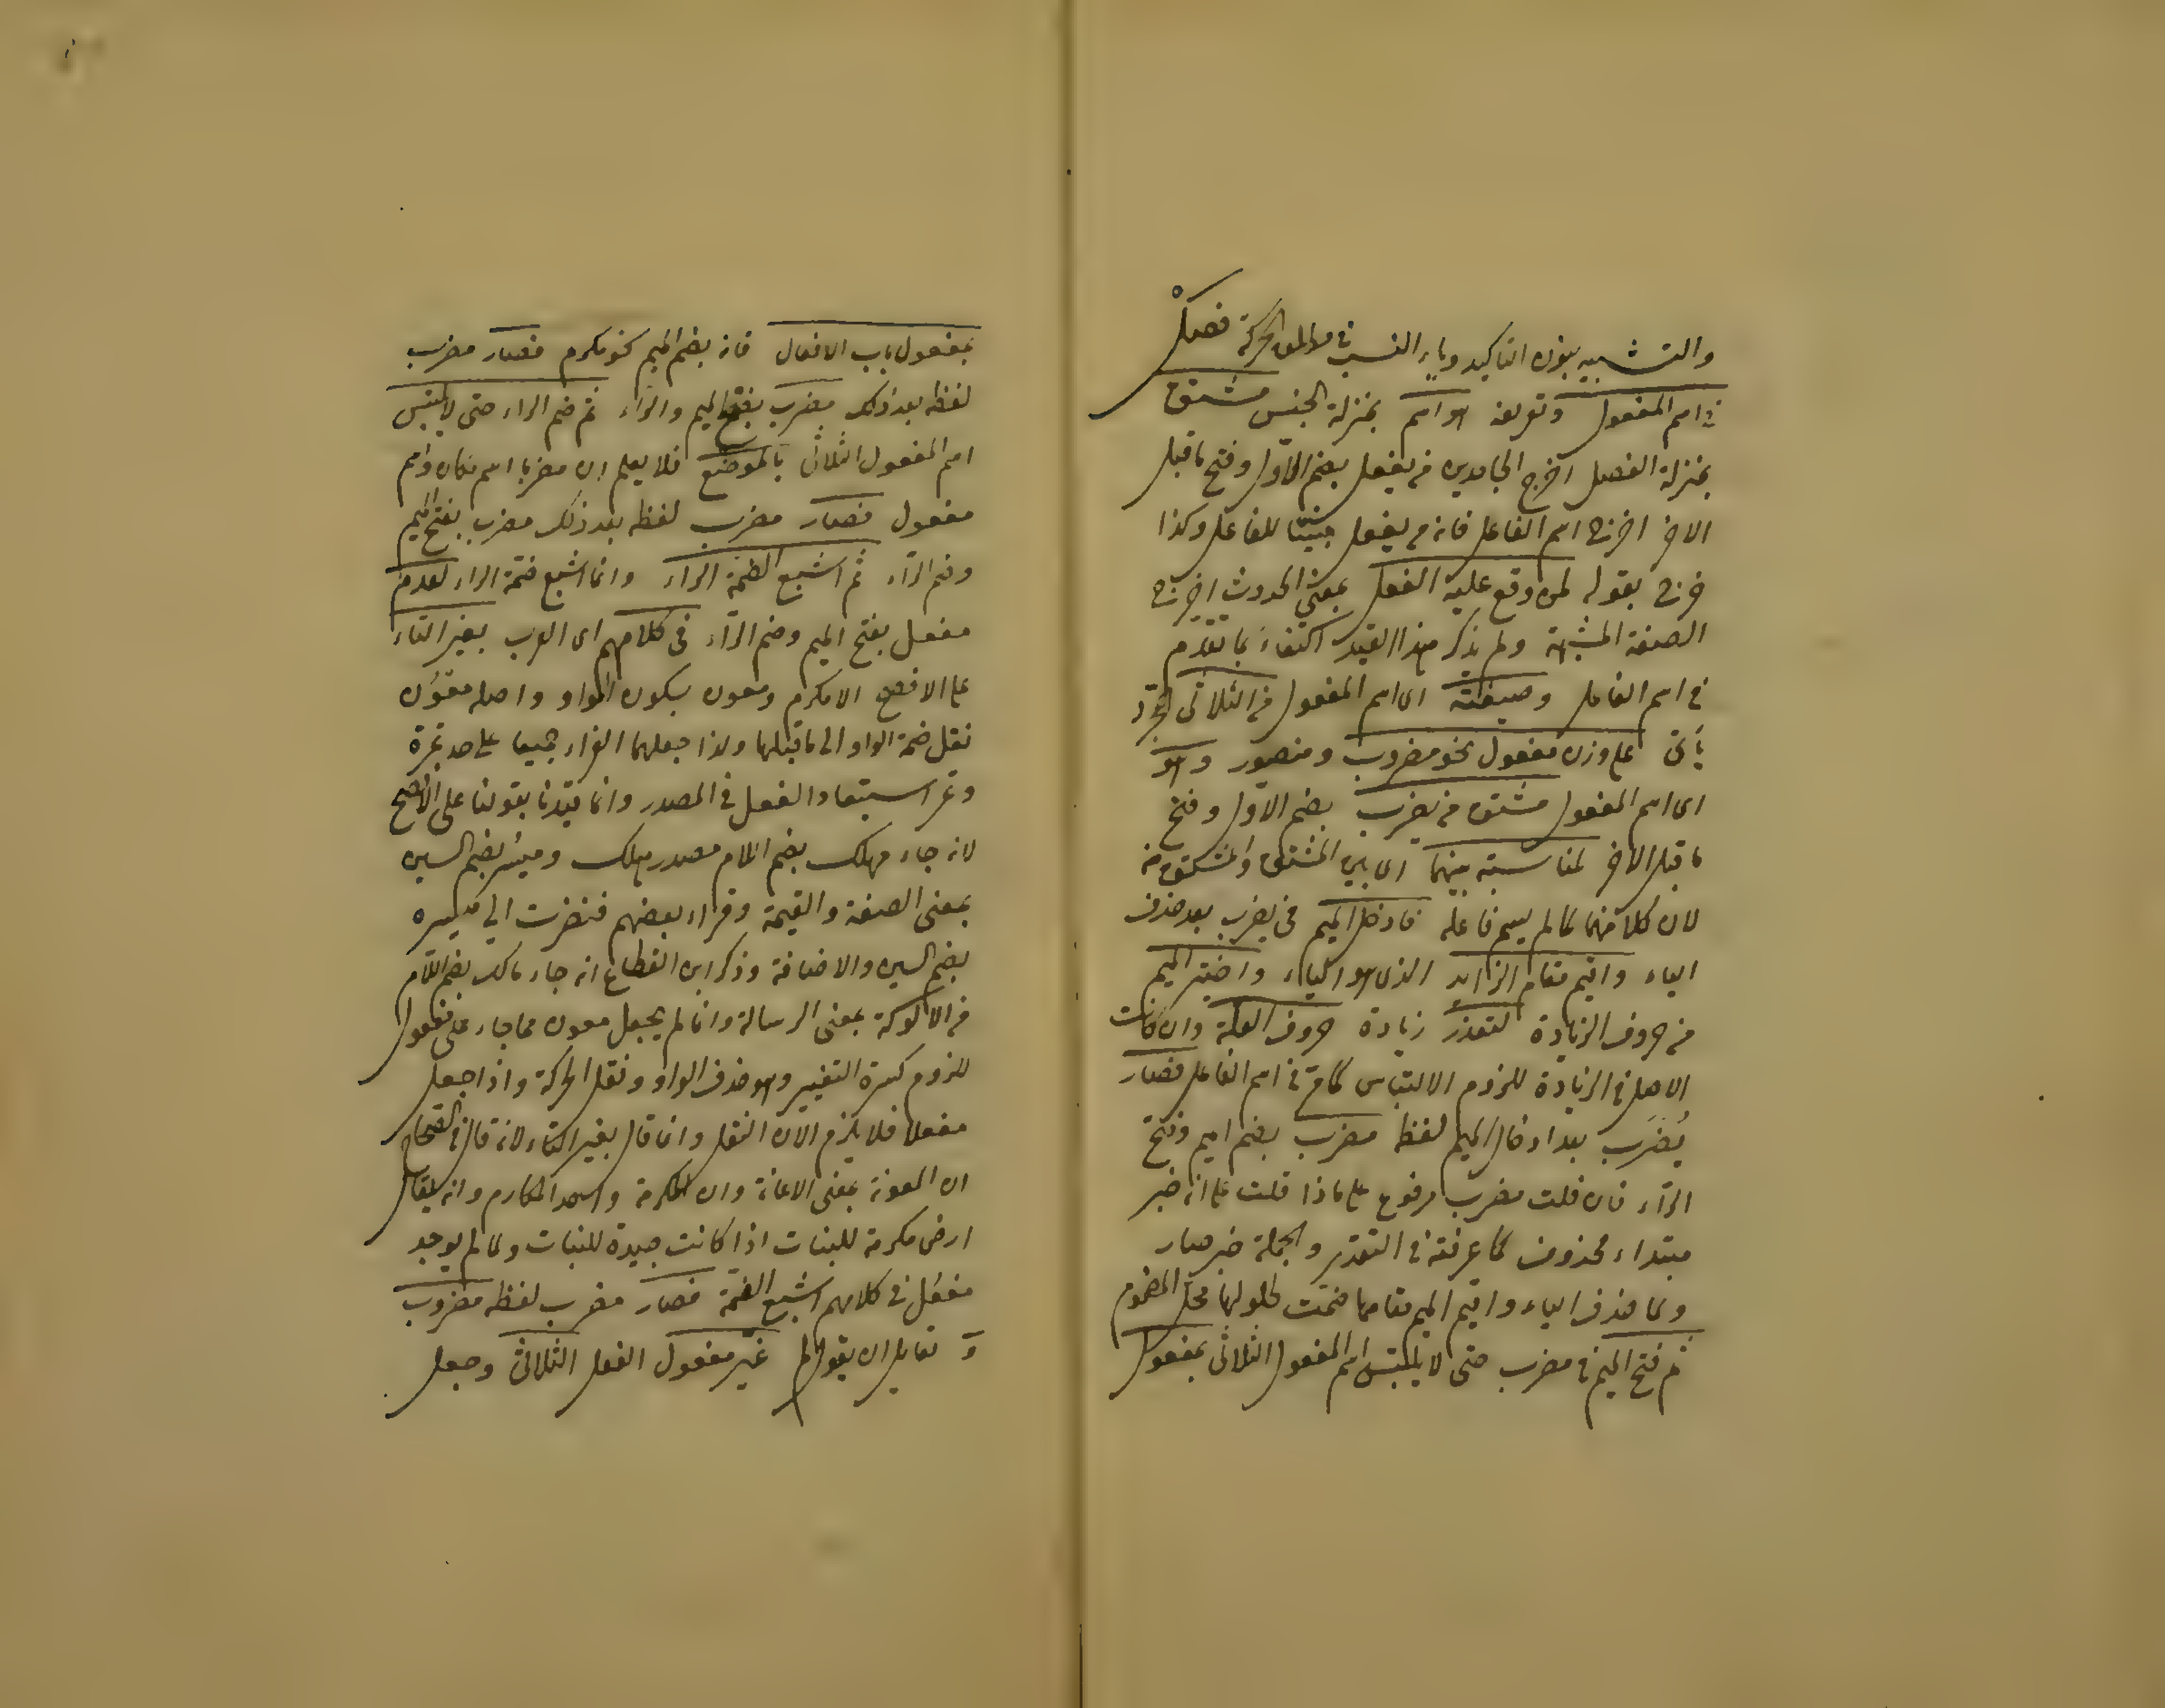 والتشبيه بنون التاكيد وياء النسب في مطلق الحركة فصل
في اسم المفعول وتعريفه هو اسم بمنزلة الجنس مشتق
بمنزلة الفصل اخرج الجامدين من يفعل بضم الاول وفتح ما قبل
الاخر اخرج اسم الفاعل فانه من يفعل مبنيا للفاعل وكذا
خرج بقوله لمن وقع عليه الفعل بمعنى الحدوث اخرج
الصفة المشبهة ولم يذكر هذا القيد اكتفاء بما تقدم
في اسم الفاعل وصيغته اى اسم المفعول من الثلاثى المجرد
يأتى على وزن مفعول نحو مضروب ومنصور وهو
اى اسم المفعول مشتق من يضرب بضم الاول وفتح
ما قبل الاخر لمناسبة بينهما اى بين المشتق والمشتق منه
لان كلا منهما لما لم يسم فاعله فادخل الميم في يضرب بعد حذف
الياء واقيم مقام الزايد الذى هو الياء واختير الميم
من حروف الزيادة لتعذر زيادة حروف العلة وان كانت
الاصل في الزيادة للزوم الالتباس كما مر في اسم الفاعل فصار
يُضرَب بعد ادخال الميم لفظ مضرب بضم الميم وفتح
الرآء فان قلت مضرب مرفوع على ماذا قلت على انه خبر
مبتداء محذوف كما عرفته في التقدير والجملة خبر صار
ولما حذف الياء واقيم الميم مقامها ضمت لحلولها محل المضموم
ثم فتح الميم في مضرب حتى لا يلتبس اسم المفعول الثلاثى بمفعول
بمفعول باب الافعال فانه بضم الميم نحو مكرم فصار مضرب
لفظه بعد ذلك مضرب بفتح الميم والراء ثم ضم الراء حتى لا يلتبس
اسم المفعول الثلاثى بالموضع فلا يعلم ان مضربا اسم مكان واسم
مفعول فصار مضرب لفظه بعد ذلك مضرب بفتح الميم
وضم الرآء ثم اشبع الضمة الراء وانما اشبع ضمة الراء لعدم
مفعل بفتح الميم وضم الرآء في كلامهم اى العرب بغير التاء
على الافصح الا مكرم ومعون بسكون الواو واصله معوُن
نقل ضمة الواو الى ما قبلها ولذا جعلهما الفراء جميعا على حد تمرة
وتمر استبعاد الفعل في المصدر وانما قيدنا بقولنا على الافصح
لانه جاء مهلك بضم اللام مصدر هلك وميسُر بضم السين
بمعنى الصفة والقيمة وقراء بعضهم فنظرت الى ميسره
بضم السين والاضافة وذكر ابن القطاع انه جاء مالك بضم اللام
من الالوكة بمعنى الرسالة وانما لم يجعل معون مما جاء على مفعول
للزوم كسرة التغيير وهو حذف الواو ونقل الحركة واذا جعل
مفعلا فلا يلزم الا ان النقل وانما قال بغير التاء لانه قال في الصحاح
ان المعونة بمعنى الاعانة وان المكرمة واحد المكارم وانه يقال
ارض مكرمة للبنات اذا كانت جيدة للنبات ولما لم يوجد
مفعُل في كلامهم اشبع الضمة فصار مضرب لفظه مضروب
و لقايل ان يقول لم غير مفعول الفعل الثلاثى وجعل